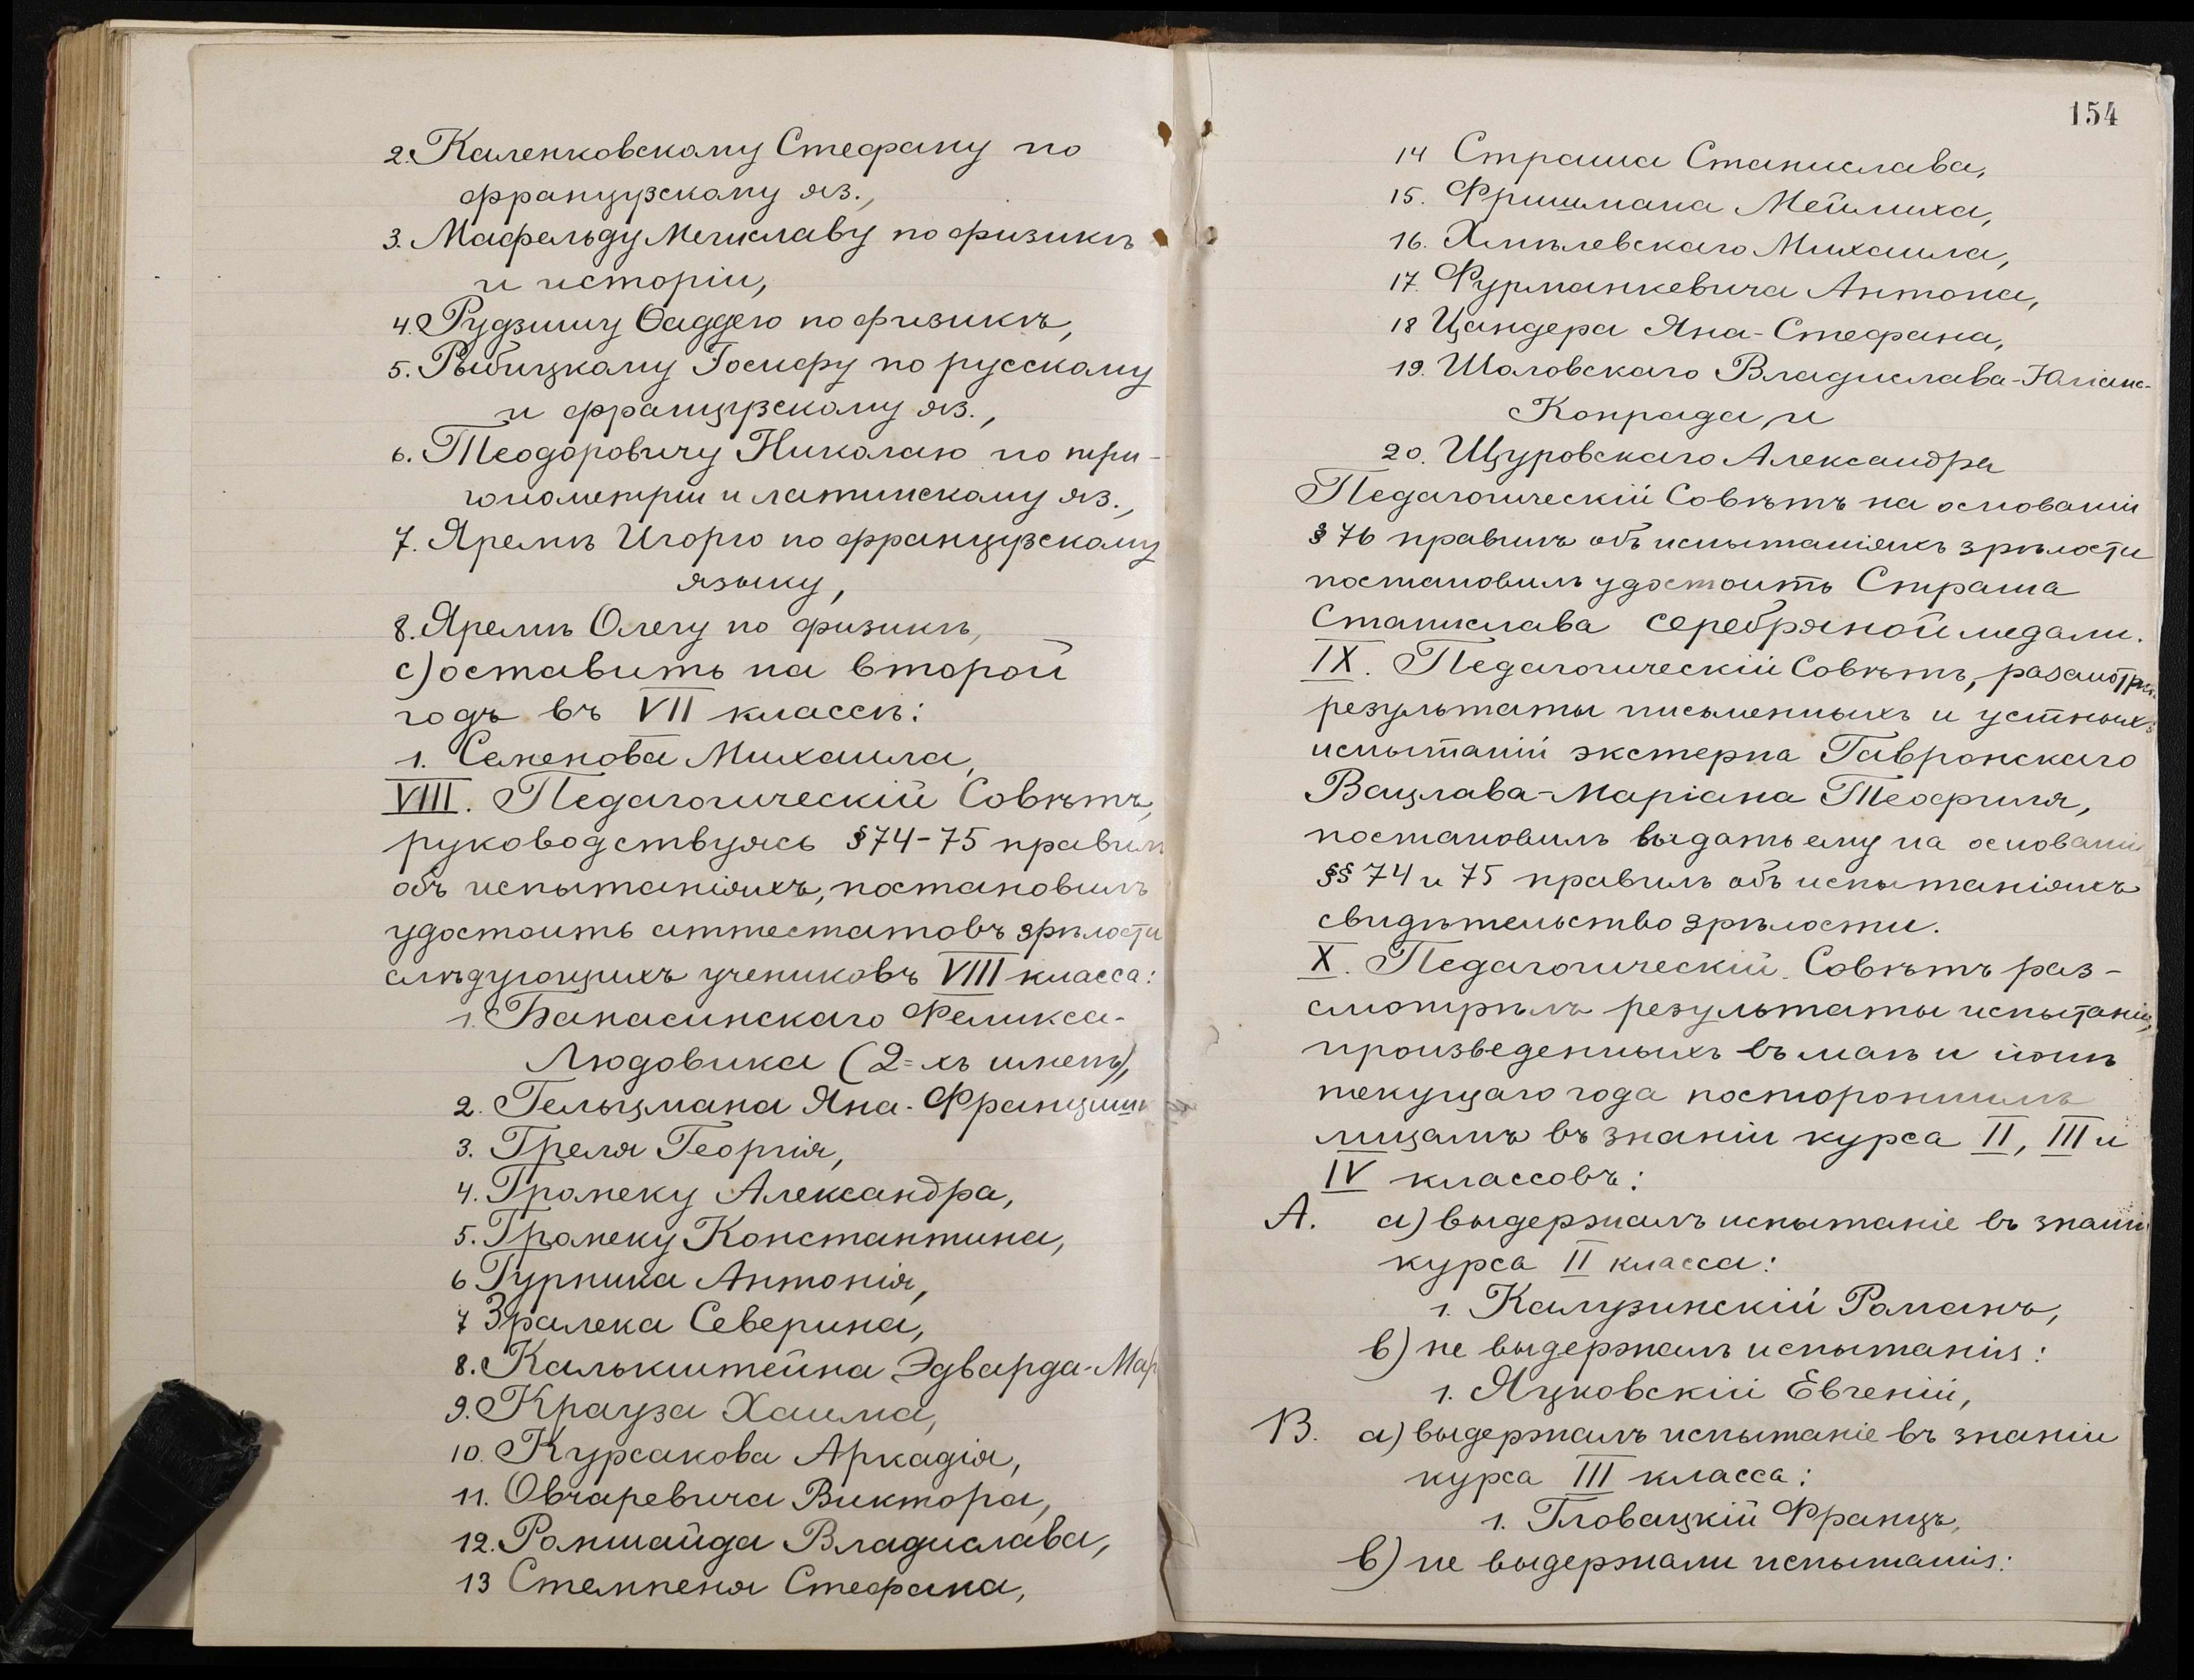 2. Каленковскому Стефану по
французскому яз.,
3. Мафельду Мечиславу по физикѣ
и исторіи,
4. Рудзишу Ѳаддею по физикѣ,
5. Рыбицкому Іосифу по русскому
и французскому яз.,
6. Теодоровичу Николаю по три-
гонометріи и латинскому яз.,
7. Яремѣ Игорю по французскому
языку,
8. Яремѣ Олегу по физикѣ,
с) оставить на второй
годъ въ VII классѣ:
1. Семенова Михаила,
VIII. Педагогическій Совѣтъ,
руководствуясь § 74-75 правилъ
объ испытаніяхъ, постановилъ
удостоить аттестатовъ зрѣлости
слѣдующихъ учениковъ VIII класса:
1. Банасинскаго Феликса-
Людовика (2-хъ именъ),
2. Гельцмана Яна-Францишк
3. Греля Георгія,
4. Громеку Александра,
5. Громеку Константина,
6 Гурника Антонія,
7 Зралека Северина,
8. Калькштейна Эдварда-Мар
9. Крауза Хаима,
10. Курсакова Аркадія,
11. Овчаревича Виктора,
12. Ромшайда Владислава,
13 Стемпеня Стефана,
154
14 Страша Станислава,
15. Фришмана Мейлиха,
16. Хмѣлевскаго Михаила,
17. Фурманкевича Антона,
18 Цандера Яна-Стефана,
19. Шоловскаго Владислава-Юліана-
Конрада, и
20. Щуровскаго Александра
Педагогическій Совѣтъ на основаніи
§ 76 правилъ объ испытаніяхъ зрѣлости
постановилъ удостоить Страша
Станислава серебряной медали.
IX. Педагогическій Совѣтъ, разсмотрѣвъ
результаты письменныхъ и устныхъ
испытаній экстерна Гавронскаго
Вацлава-Маріана Теофиля,
постановилъ выдать ему на основаніи
§§ 74 и 75 правилъ объ испытаніяхъ
свидѣтельство зрѣлости.
X. Педагогическій Совѣтъ раз-
смотрѣлъ результаты испытаній,
произведенныхъ въ маѣ и іюнѣ
текущаго года постороннимъ
лицамъ въ знаніи курса II, III и
IV классовъ:
А. а) выдержалъ испытаніе въ знаніи
курса II класса:
1. Калузинскій Романъ,
в) не выдержалъ испытанія:
1. Яцковскій Евгеній,
В. а) выдержалъ испытаніе въ знаніи
курса III класса:
1. Гловацкій Францъ,
в) не выдержали испытанія: